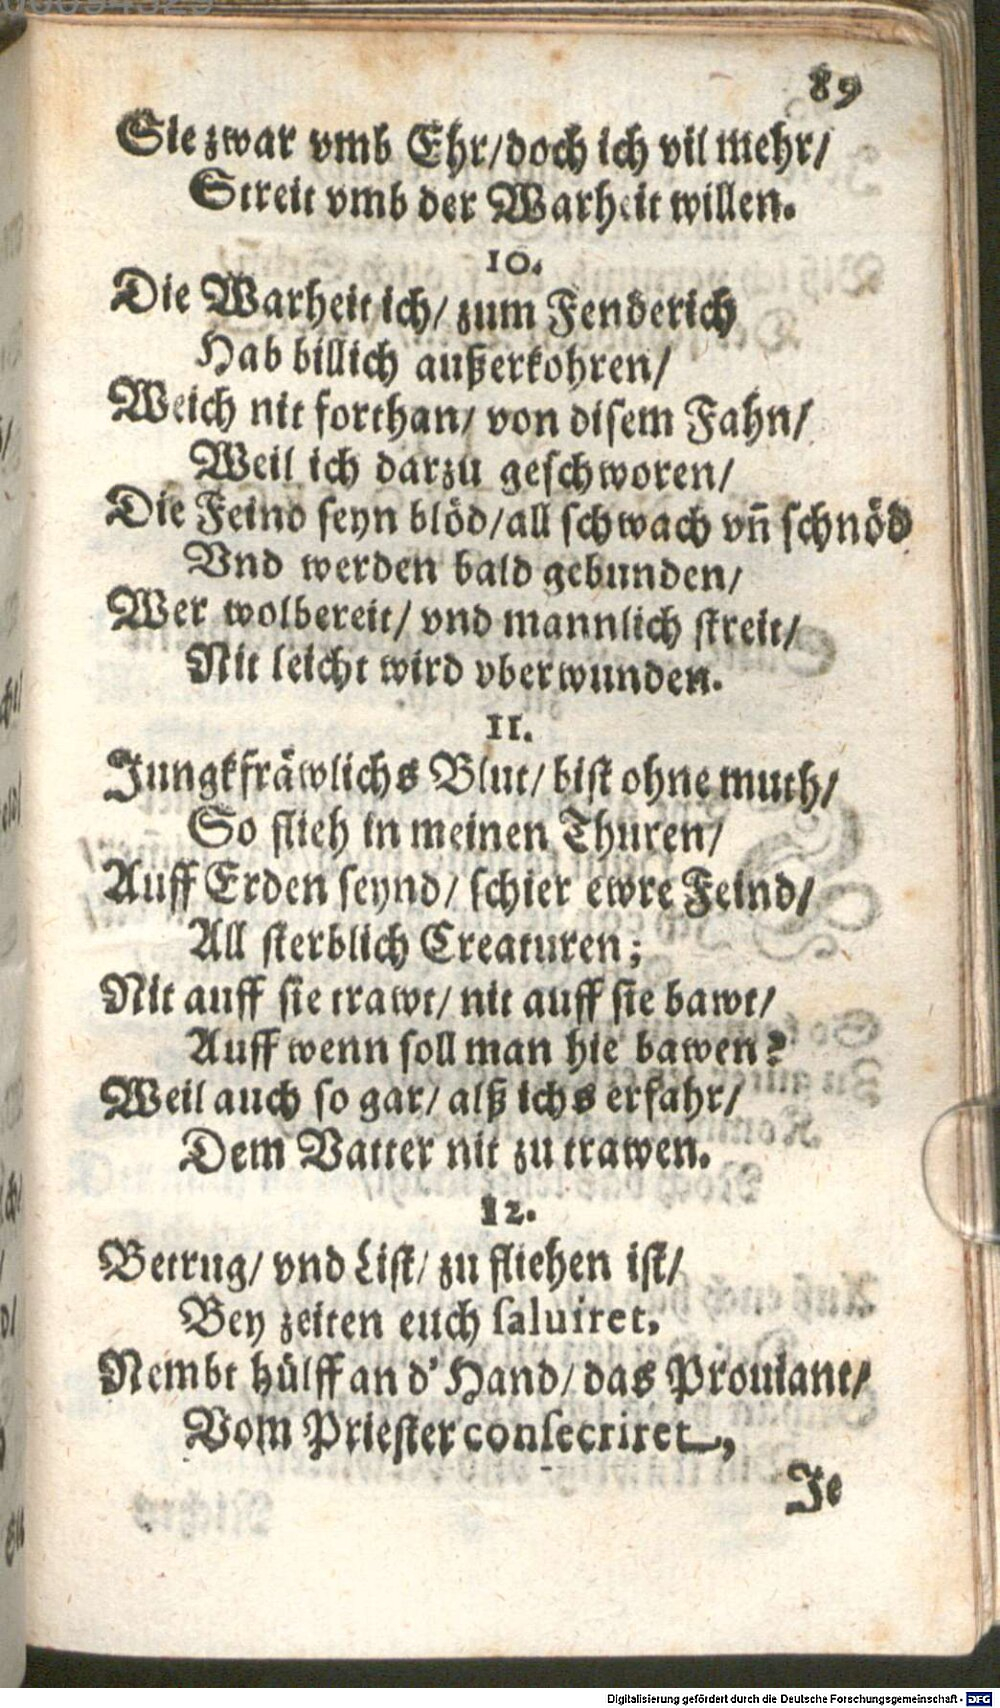 89
Sie zwar vmb Ehr/doch ich vil mehr/
Streit vmb der Warheit willen.
10.
Die Warheit ich/ zum Fenderich
Hab billich außerkohren/
Weich nit forthan/ von disem Fahn/
Weil ich darzu geschworen/
Die Feind seyn blöd/all schwach vñ schnöd
Vnd werden bald gebunden/
Wer wolbereit/ vnd mannlich streit/
Nit leicht wird vberwunden.
11.
Jungkfräwlichs Blut/ bist ohne muth/
So flieh in meinen Thuren/
Auff Erden seynd/ schier ewre Feind/
All sterblich Creaturen;
Nit auff sie trawt/ nit auff sie bawt/
Auff wenn soll man hie bawen?
Weil auch so gar/ alß ichs erfahr/
Dem Vatter nit zu trawen.
12.
Betrug/ vnd List/ zu fliehen ist/
Bey zeiten euch saluiret,
Nembt hülff an d' Hand/ das Prouiant/
Vom Priester consecriret,
Je
Digitalisierung gefördert durch die Deutsche Forschungsgemeinschaft - DFG